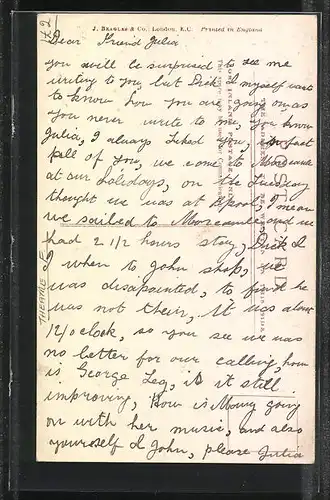 J. BEAGLES & Co., London, E.C. Printed in England
Dear Friend Julia
you will be surprised to see me
writing to you, but Dick & myself want
to know how you are going on, as
you never write to me, you know
Julia, I always liked you, in fact
fall of you, we come to Morecambe
at our holidays, on the Tuesday
thought we was at Bpool, I mean
we sailed to Morecambe, and we
had 2 1/2 hours stay, Dick &
I when to John shop, we
was disapointed, to find he
was not their, it was about
12/oclock, so you see we was
no better for our calling, how
is George Leg, is it still
improving, How is Mouny going
on with her music, and also
yourself & John, please Julia
POST CARD
THEATRE